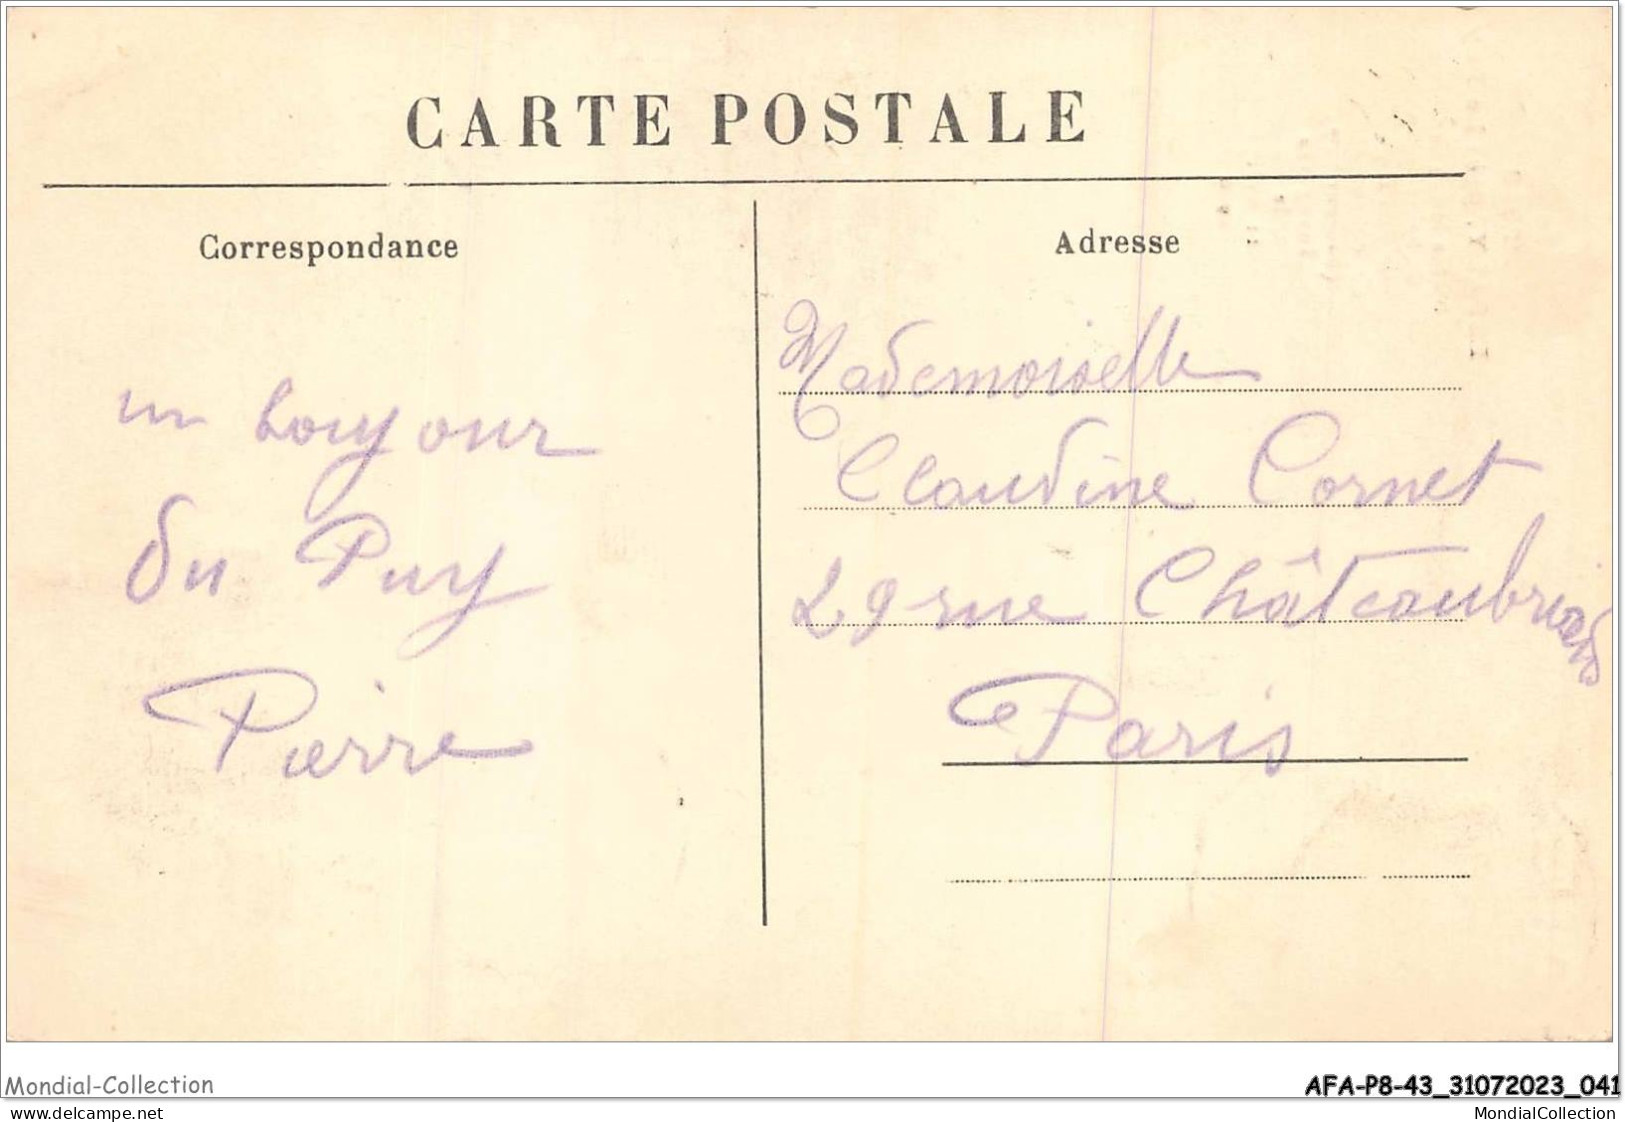 CARTE POSTALE
Correspondance
un bonjour
du Puy
Pierre
Adresse
Mademoiselle
Claudine Cornet
29 rue Châteaubriand
Paris
Mondial-Collection
AFA-P8-43_31072023_041
delcampe.net
MondialCollection